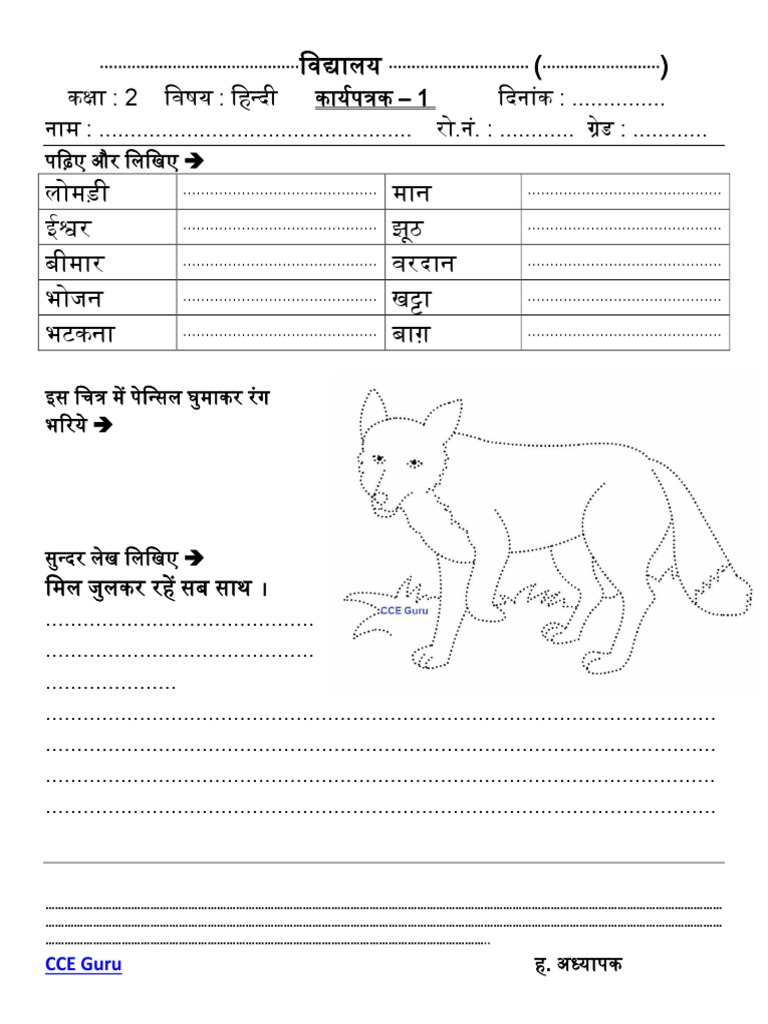 ..........................................विद्यालय .............................. (.........................)
कक्षा : 2 विषय : हिन्दी कार्यपत्रक – 1 दिनांक : ...............
नाम : .................................................. रो.नं. : ............ ग्रेड : ............
पढ़िए और लिखिए ➔
लोमड़ी ......................................... मान .........................................
ईश्वर ......................................... झूठ .........................................
बीमार ......................................... वरदान .........................................
भोजन ......................................... खट्टा .........................................
भटकना ......................................... बाग़ .........................................
इस चित्र में पेन्सिल घुमाकर रंग
भरिये ➔
सुन्दर लेख लिखिए ➔
मिल जुलकर रहें सब साथ ।
CCE Guru
CCE Guru ह. अध्यापक